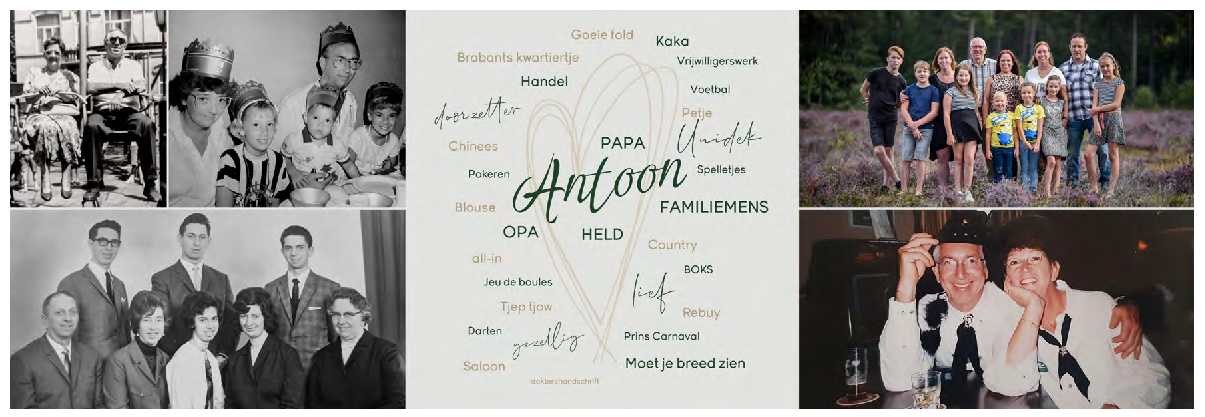 Goeie fold
Kaka
Brabants kwartiertje
Vrijwilligerswerk
Handel
Voetbal
doorzetter
Petje
Unidek
Chinees
PAPA
Pokeren
Antoon
Spelletjes
Blouse
FAMILIEMENS
OPA
HELD
Country
all-in
BOKS
Jeu de boules
lief
Tjep tjow
Rebuy
Darten
gezellig
Prins Carnaval
Saloon
Moet je breed zien
doktershandschrift